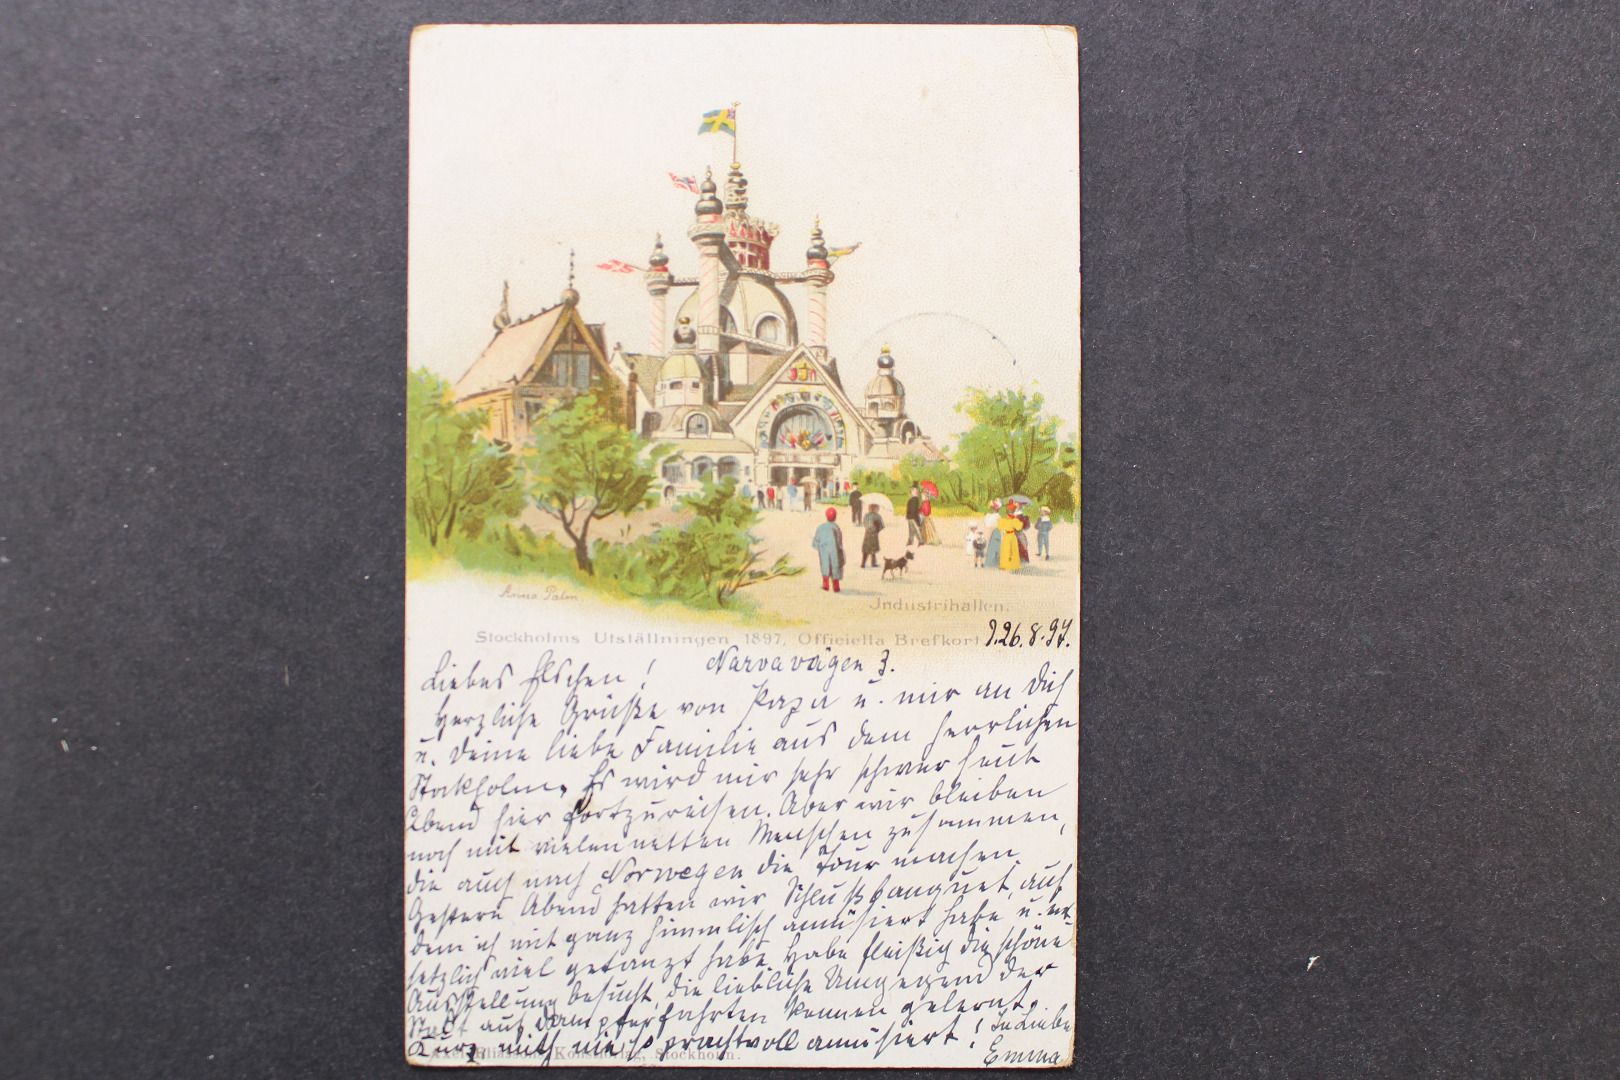 Anna Palm.
Industrihallen.
Stockholms Utställningen 1897, Officiella Brefkort
26.8.97.
Liebes Elschen! Narvavägen 3.
Herzliche Grüße von Papa u. mir an Dich
u. Deine liebe Familie aus dem herrlichen
Stockholm. Es wird mir sehr schwer heut
Abend hier fortzureisen. Aber wir bleiben
noch mit vielen netten Menschen zusammen,
die auch nach Norwegen die Tour machen.
Gestern Abend hatten wir Schlußbanquet, auf
dem ich mit ganz himmlisch amüsiert habe u. ent-
setzlich viel getanzt habe. Habe fleißig die schöne
Ausstellung besucht, die liebliche Umgegend der
Stadt auf Dampferfahrten kennen gelernt.
Kurz mich prachtvoll amüsiert! In Liebe
Emma
Axel Eliassons Konstförlag, Stockholm.